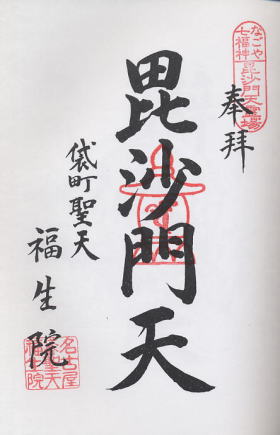 なごや
七福神
毘沙門天霊場
奉拝
毘沙門天
袋町聖天
福生院
名古屋